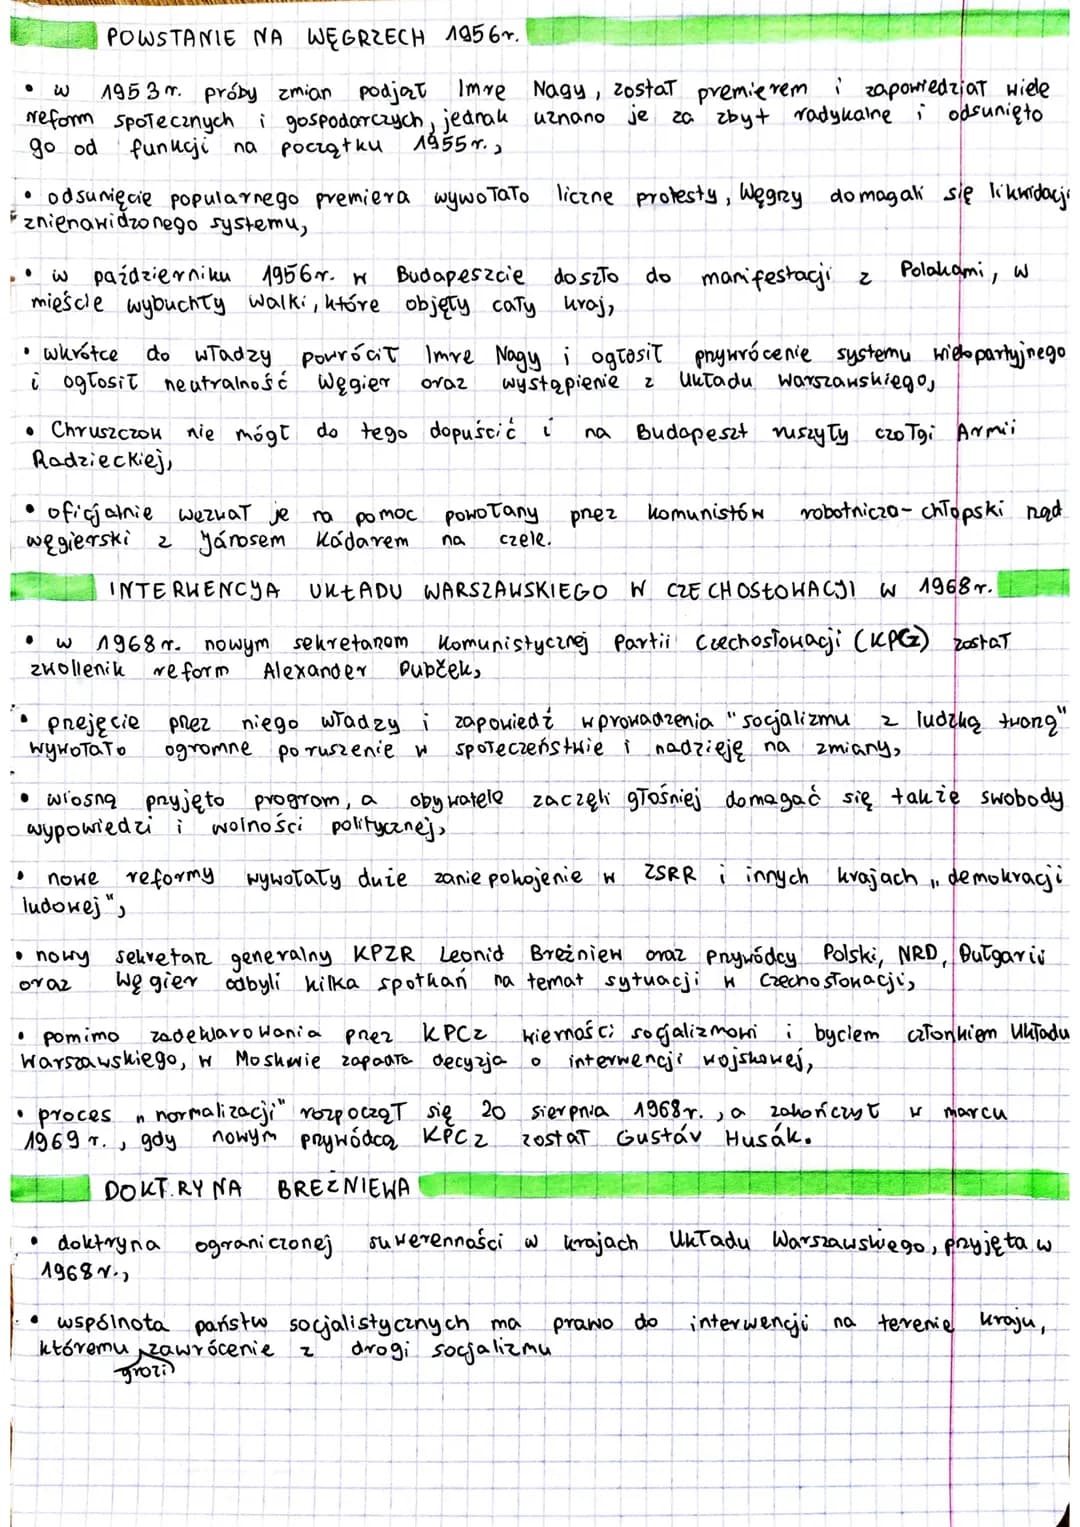 POWSTANIE NA WĘGRZECH 1956r.
• w 1953r. próby zmian podjął Imre Nagy, został premierem i zapowiedział wiele
reform społecznych i gospodarczych, jednak uznano je za zbyt radykalne i odsunięto
go od funkcji na początku 1955r.,
• odsunięcie popularnego premiera wywołało liczne protesty, Węgrzy domagali się likwidacji
znienawidzonego systemu,
• w październiku 1956r. w Budapeszcie doszło do manifestacji z Polakami, w
mieście wybuchły walki, które objęły cały kraj,
• wkrótce do władzy powrócił Imre Nagy i ogłosił przywrócenie systemu wielopartyjnego
i ogłosił neutralność Węgier oraz wystąpienie z Układu Warszawskiego,
• Chruszczow nie mógł do tego dopuścić i na Budapeszt ruszyły czołgi Armii
Radzieckiej,
• oficjalnie wezwał je na pomoc powołany przez komunistów robotniczo-chłopski rząd
węgierski z Jánosem Kádárem na czele.
INTERWENCJA UKŁADU WARSZAWSKIEGO W CZECHOSŁOWACJI w 1968r.
• w 1968r. nowym sekretarzem Komunistycznej Partii Czechosłowacji (KPCz) został
zwolennik reform Alexander Dubček,
• przejęcie przez niego władzy i zapowiedź wprowadzenia "socjalizmu z ludzką twarzą"
wywołało ogromne poruszenie w społeczeństwie i nadzieję na zmiany,
• wiosną przyjęto program, a obywatele zaczęli głośniej domagać się także swobody
wypowiedzi i wolności politycznej,
• nowe reformy wywołały duże zaniepokojenie w ZSRR i innych krajach „demokracji
ludowej",
• nowy sekretarz generalny KPZR Leonid Breżniew oraz przywódcy Polski, NRD, Bułgarii
oraz Węgier odbyli kilka spotkań na temat sytuacji w Czechosłowacji,
• pomimo zadeklarowania przez KPCz wierności socjalizmowi i byciem członkiem Układu
Warszawskiego, w Moskwie zapadła decyzja o interwencji wojskowej,
• proces „normalizacji" rozpoczął się 20 sierpnia 1968r., a zakończył w marcu
1969r., gdy nowym przywódcą KPCz został Gustáv Husák.
DOKTRYNA BREŻNIEWA
• doktryna ograniczonej suwerenności w krajach Układu Warszawskiego, przyjęta w
1968r.,
• wspólnota państw socjalistycznych ma prawo do interwencji na terenie kraju,
któremu zawrócenie z drogi socjalizmu
grozi